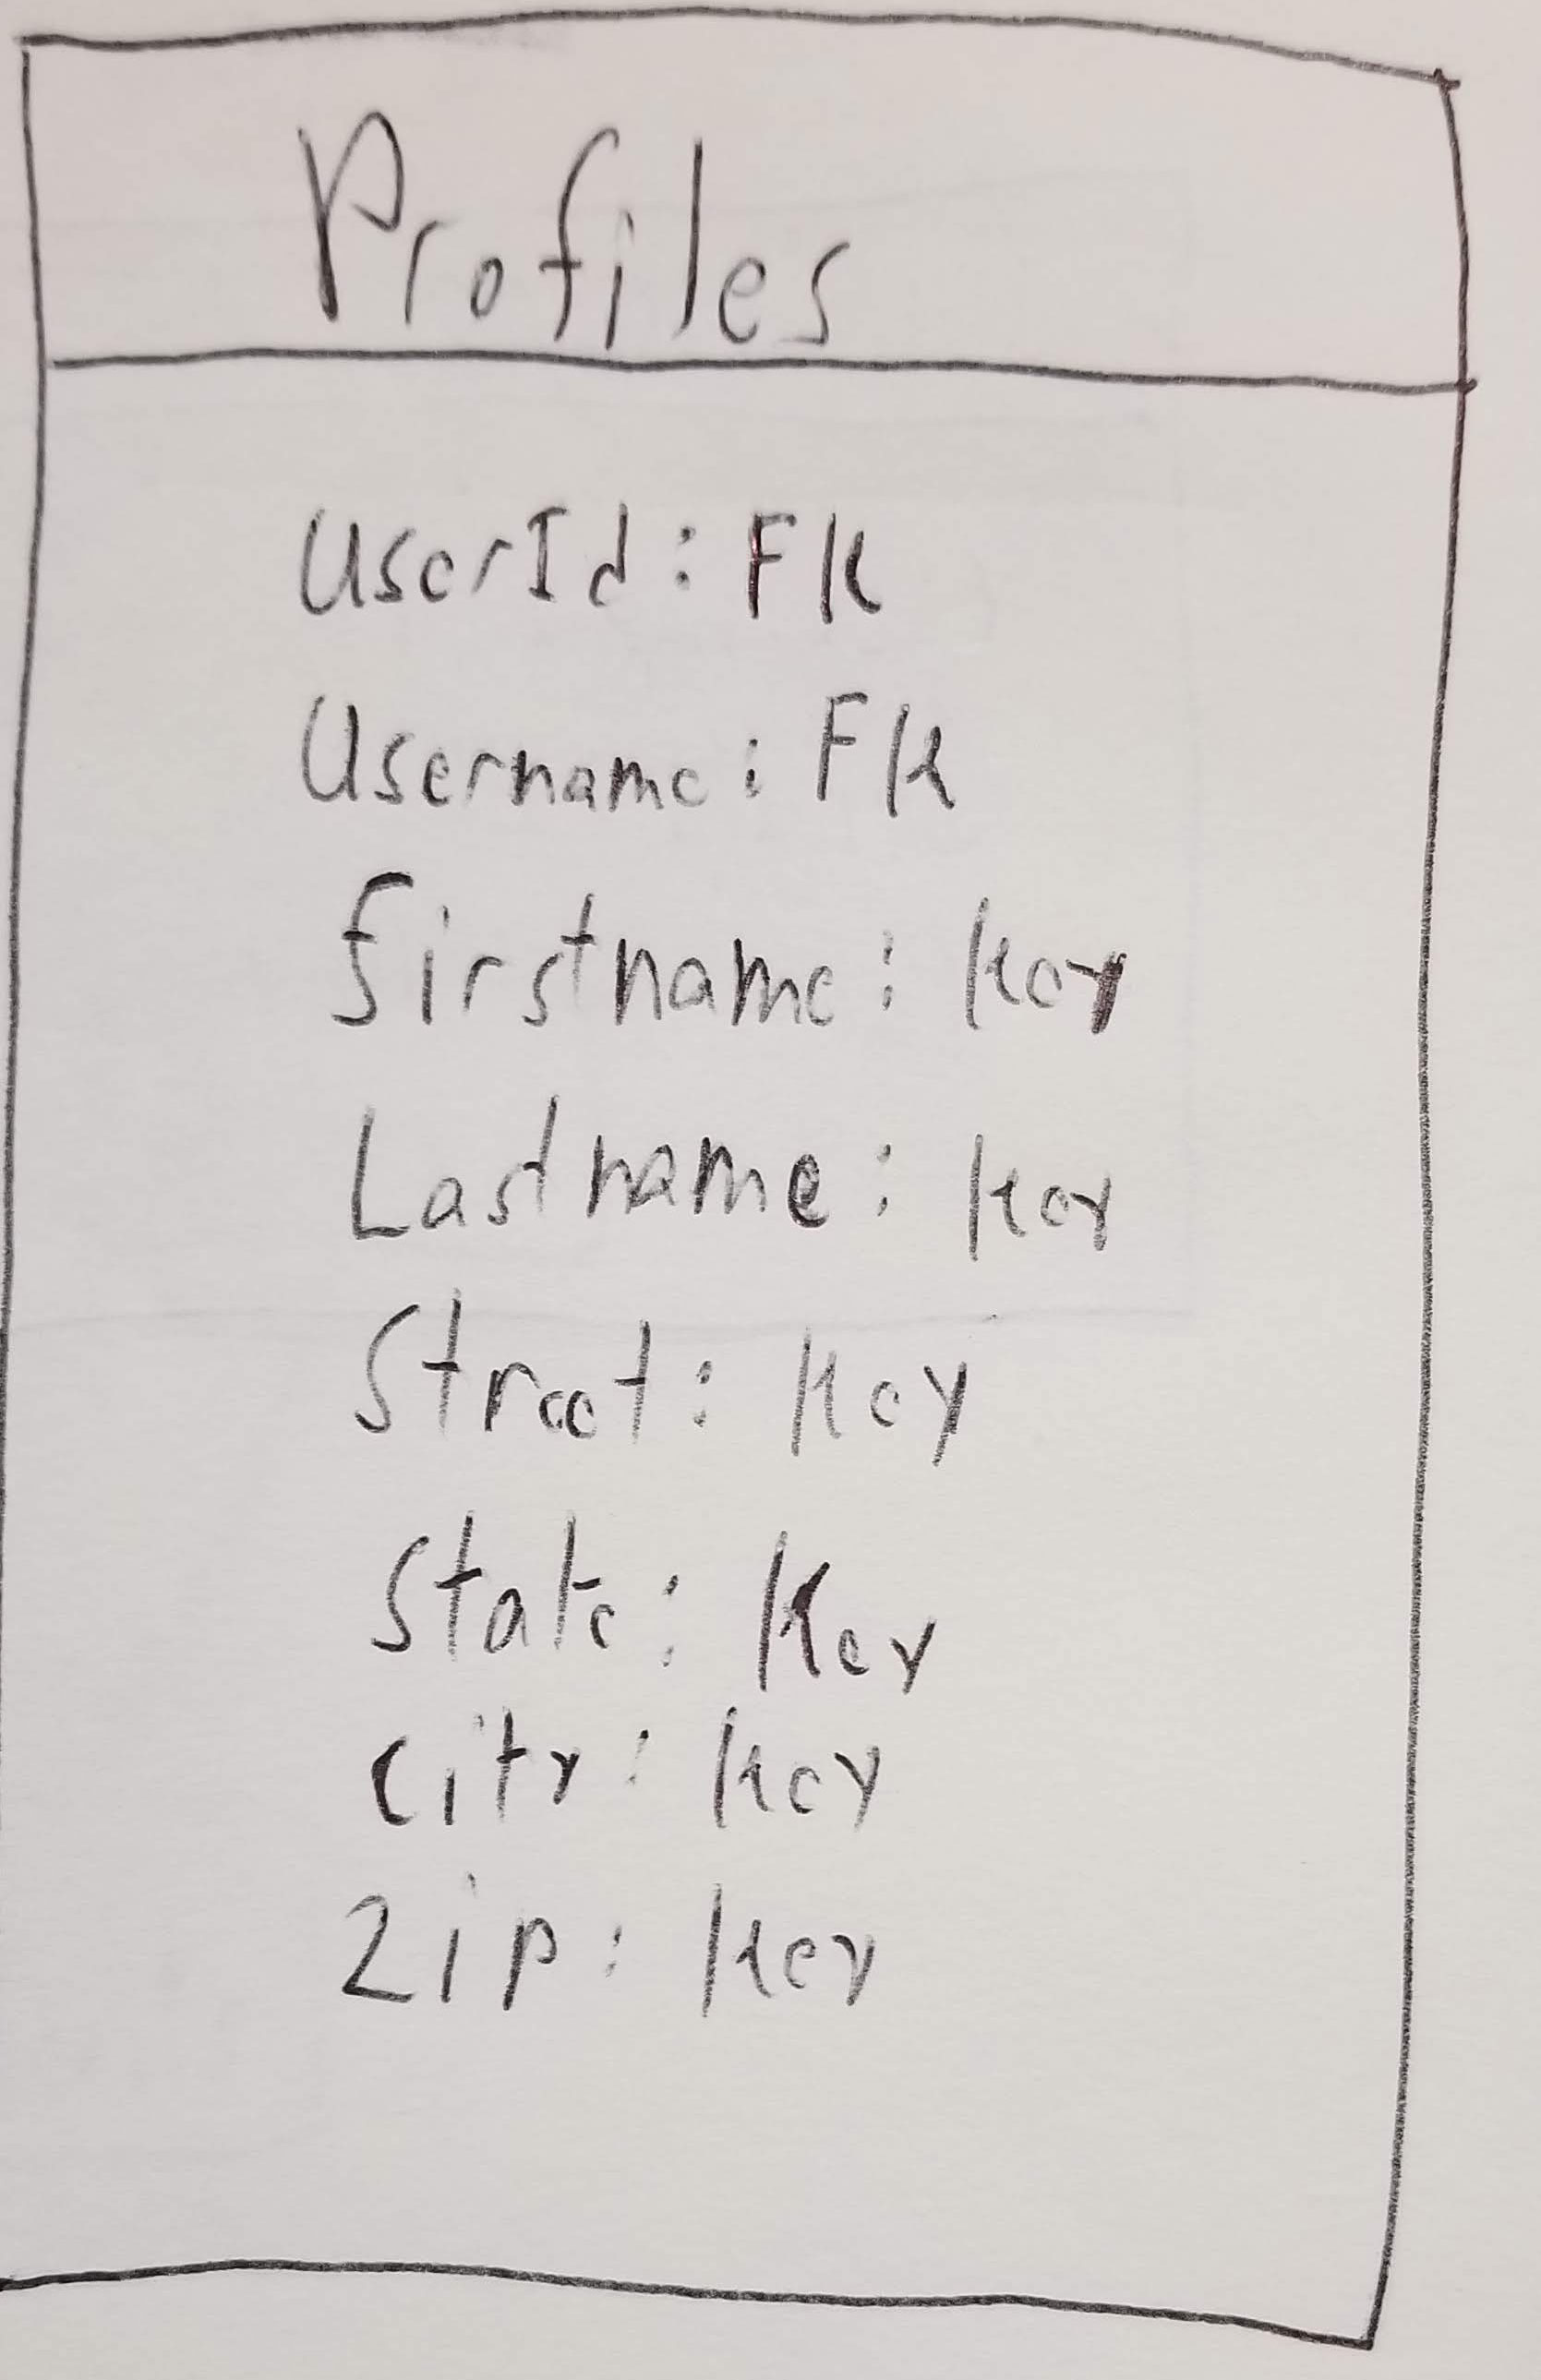 Profiles
UserId: FK
Username: FK
firstname: key
Lastname: key
Street: key
State: Key
city: key
Zip: key